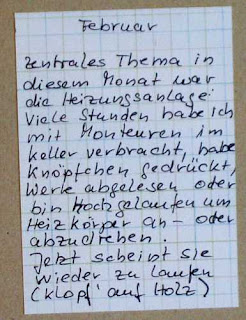 Februar
Zentrales Thema in
diesem Monat war
die Heizungsanlage:
Viele Stunden habe ich
mit Monteuren im
Keller verbracht, habe
Knöpfchen gedrückt,
Werte abgelesen oder
bin hochgelaufen um
Heizkörper an- oder
abzudrehen.
Jetzt scheint sie
wieder zu laufen
(klopf' auf Holz)